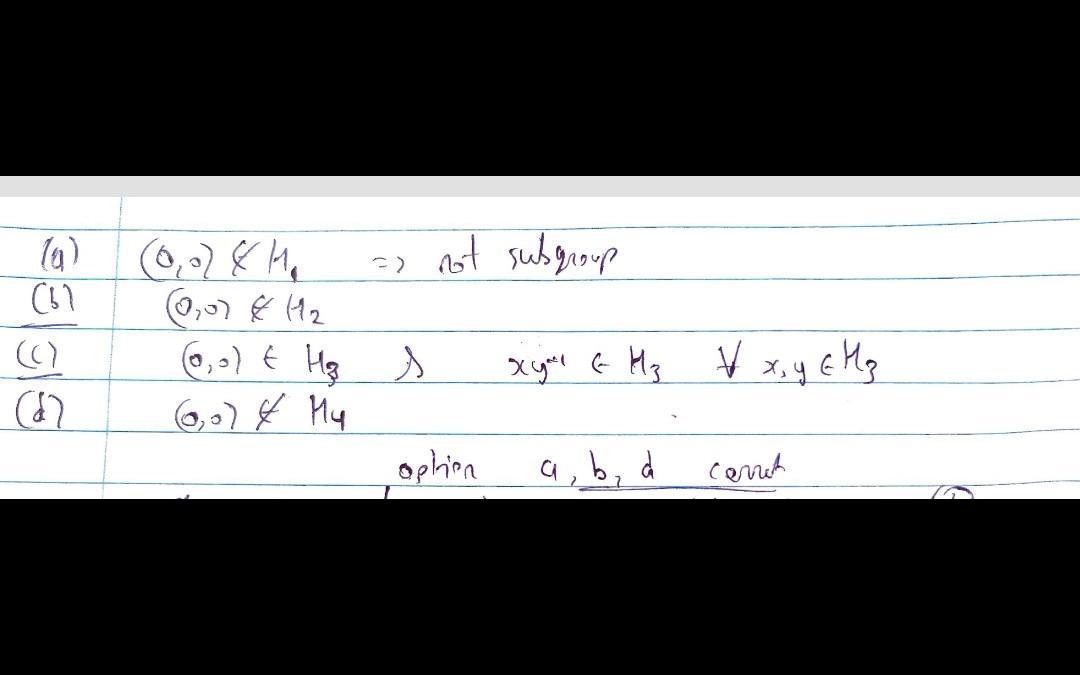 (a) (0,0) ∉ H₁ => not subgroup
(b) (0,0) ∉ H₂
(c) (0,0) ∈ H₃ & xy⁻¹ ∈ H₃ ∀ x,y ∈ H₃
(d) (0,0) ∉ H₄
option a, b, d correct